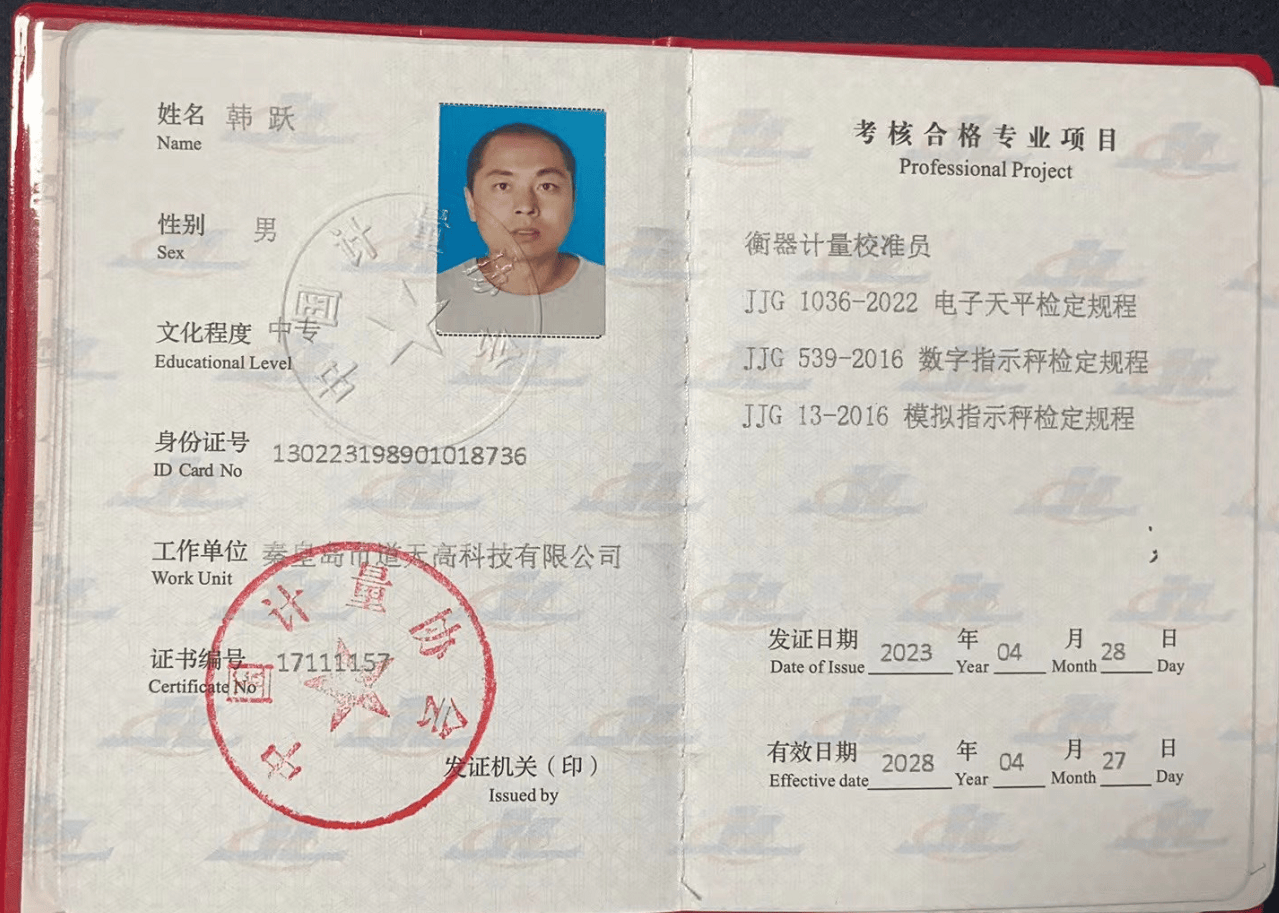 姓名 韩 跃
Name
性别 男
Sex
文化程度 中专
Educational Level
身份证号 130223198901018736
ID Card No
工作单位 秦皇岛市道天高科技有限公司
Work Unit
证书编号 17111157
Certificate No
发证机关（印）
Issued by
中国计量协会
中国计量协会
考核合格专业项目
Professional Project
衡器计量校准员
JJG 1036-2022 电子天平检定规程
JJG 539-2016 数字指示秤检定规程
JJG 13-2016 模拟指示秤检定规程
发证日期 2023 年 04 月 28 日
Date of Issue Year Month Day
有效日期 2028 年 04 月 27 日
Effective date Year Month Day